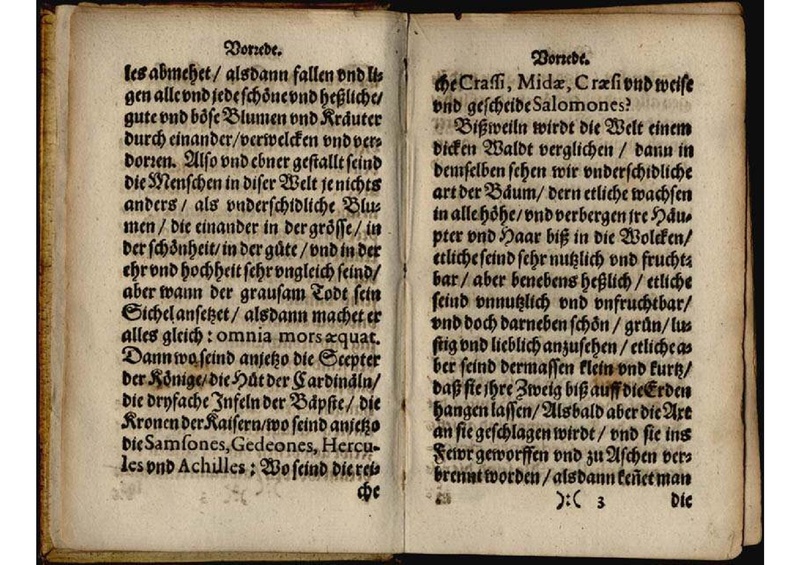 Vorrede.
les abmehet/ alsdann fallen vnd li-
gen alle vnd jede schöne vnd heßliche/
gute vnd böse Blumen vnd Kräuter
durch einander/ verwelcken vnd ver-
dorren. Also vnd ebner gestallt seind
die Menschen in diser Welt je nichts
anders/ als vnderschidliche Blu-
men/ die einander in der grösse/ in
der schönheit/ in der güte/ vnd in der
ehr vnd hochheit sehr vngleich seind/
aber wann der grausam Todt sein
Sichel ansetzet/ alsdann machet er
alles gleich: omnia mors æquat.
Dann wo seind anjetzo die Scepter
der Könige/ die Hüt der Cardinäln/
die dryfache Infeln der Bäpste/ die
Kronen der Kaisern/ wo seind anjetzo
die Samsones, Gedeones, Hercu-
les vnd Achilles: Wo seind die rei-
che
Vorrede.
che Crassi, Midæ, Cræsi vnd weise
vnd gescheide Salomones?
Bißweiln wirdt die Welt einem
dicken Waldt verglichen/ dann in
demselben sehen wir vnderschidliche
art der Bäum/ dern etliche wachsen
in alle höhe/ vnd verbergen jre Häu-
pter vnd Haar biß in die Wolcken/
etliche seind sehr nutzlich vnd frucht-
bar/ aber benebens heßlich/ etliche
seind vnnutzlich vnd vnfruchtbar/
vnd doch darneben schön/ grün/ lu-
stig vnd lieblich anzusehen/ etliche a-
ber seind dermassen klein vnd kurtz/
daß sie jhre Zweig biß auff die Erden
hangen lassen/ Alsbald aber die Axt
an sie geschlagen wirdt/ vnd sie ins
Fewr geworffen vnd zu Aschen ver-
brennt worden/ alsdann keñet man
):( 3 die